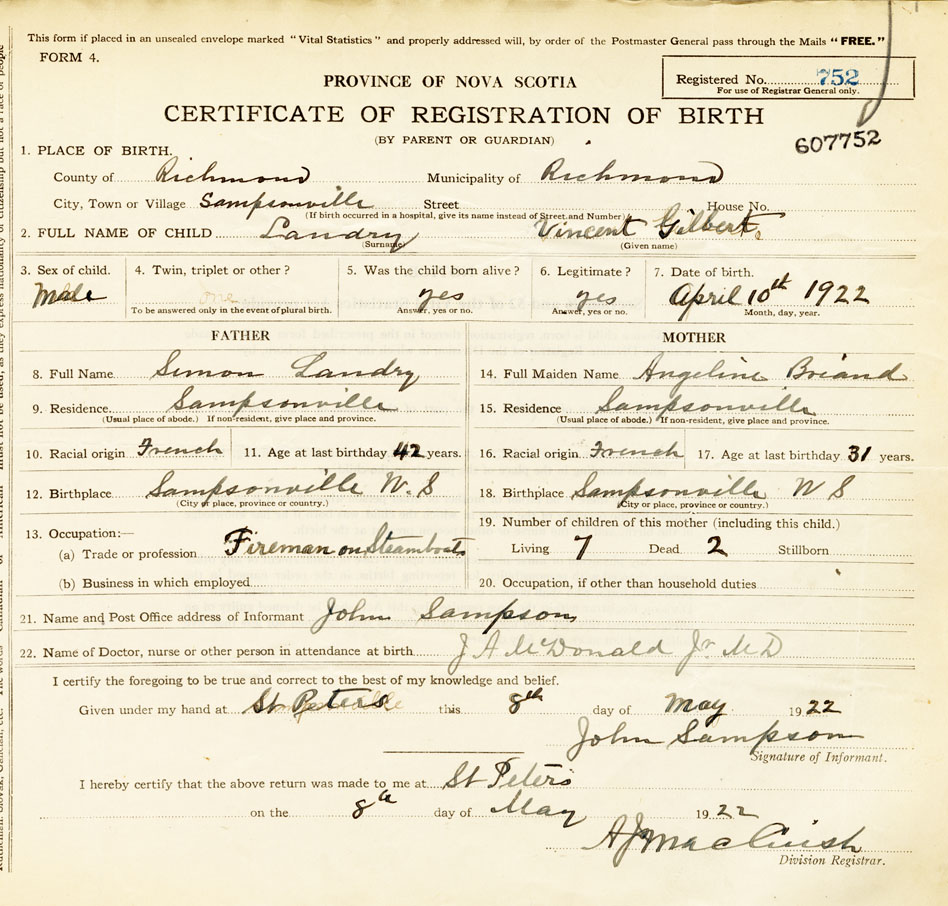 This form if placed in an unsealed envelope marked "Vital Statistics" and properly addressed will, by order of the Postmaster General pass through the Mails "FREE."
FORM 4.
PROVINCE OF NOVA SCOTIA
Registered No. 752
For use of Registrar General only.
CERTIFICATE OF REGISTRATION OF BIRTH
(BY PARENT OR GUARDIAN)
607752
1. PLACE OF BIRTH.
County of Richmond Municipality of Richmond
City, Town or Village Sampsonville Street House No.
(If birth occurred in a hospital, give its name instead of Street and Number)
2. FULL NAME OF CHILD Landry Vincent Gilbert.
(Surname) (Given name)
3. Sex of child. 4. Twin, triplet or other? 5. Was the child born alive? 6. Legitimate? 7. Date of birth.
Male one yes yes April 10th 1922
To be answered only in the event of plural birth. Answer, yes or no. Answer, yes or no. Month, day, year.
FATHER MOTHER
8. Full Name Simon Landry 14. Full Maiden Name Angeline Briand
9. Residence Sampsonville 15. Residence Sampsonville
(Usual place of abode.) If non-resident, give place and province. (Usual place of abode.) If non-resident, give place and province.
10. Racial origin French 11. Age at last birthday 42 years. 16. Racial origin French 17. Age at last birthday 31 years.
12. Birthplace Sampsonville N.S 18. Birthplace Sampsonville N S
(City or place, province or country.) (City or place, province or country.)
13. Occupation:— 19. Number of children of this mother (including this child.)
(a) Trade or profession Fireman on Steamboats Living 7 Dead 2 Stillborn
(b) Business in which employed 20. Occupation, if other than household duties
21. Name and Post Office address of Informant John Sampson
22. Name of Doctor, nurse or other person in attendance at birth J A McDonald Jr M D
I certify the foregoing to be true and correct to the best of my knowledge and belief.
Given under my hand at St Peters this 8th day of May 1922
John Sampson
Signature of Informant.
I hereby certify that the above return was made to me at St Peters
on the 8th day of May 1922
A J MacCuish
Division Registrar.